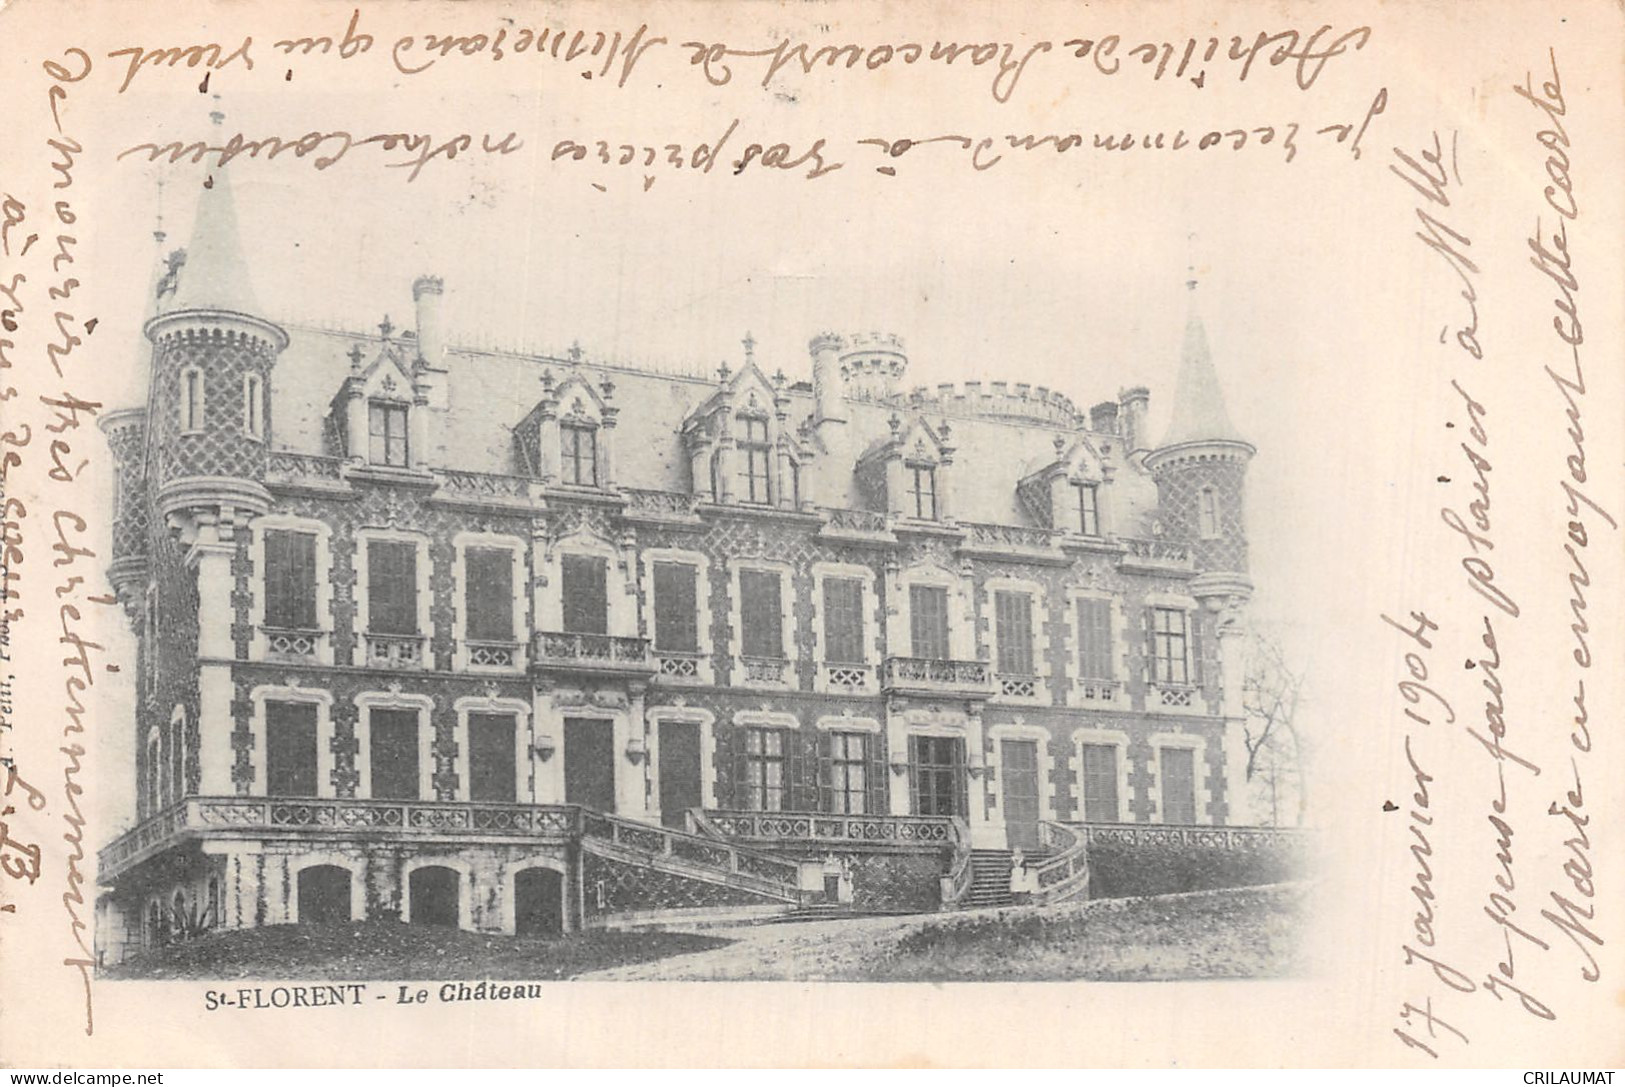 17 Janvier 1904
Je pense faire plaisir à Mlle
Marie en envoyant cette carte
Je recommande à vos prières notre Cousin
Achille de Rancourt de Mimerand qui vient
de mourir très chrétiennement
à vous de cœur
L. B.
St-FLORENT - Le Château
Petit,
CRILAUMAT